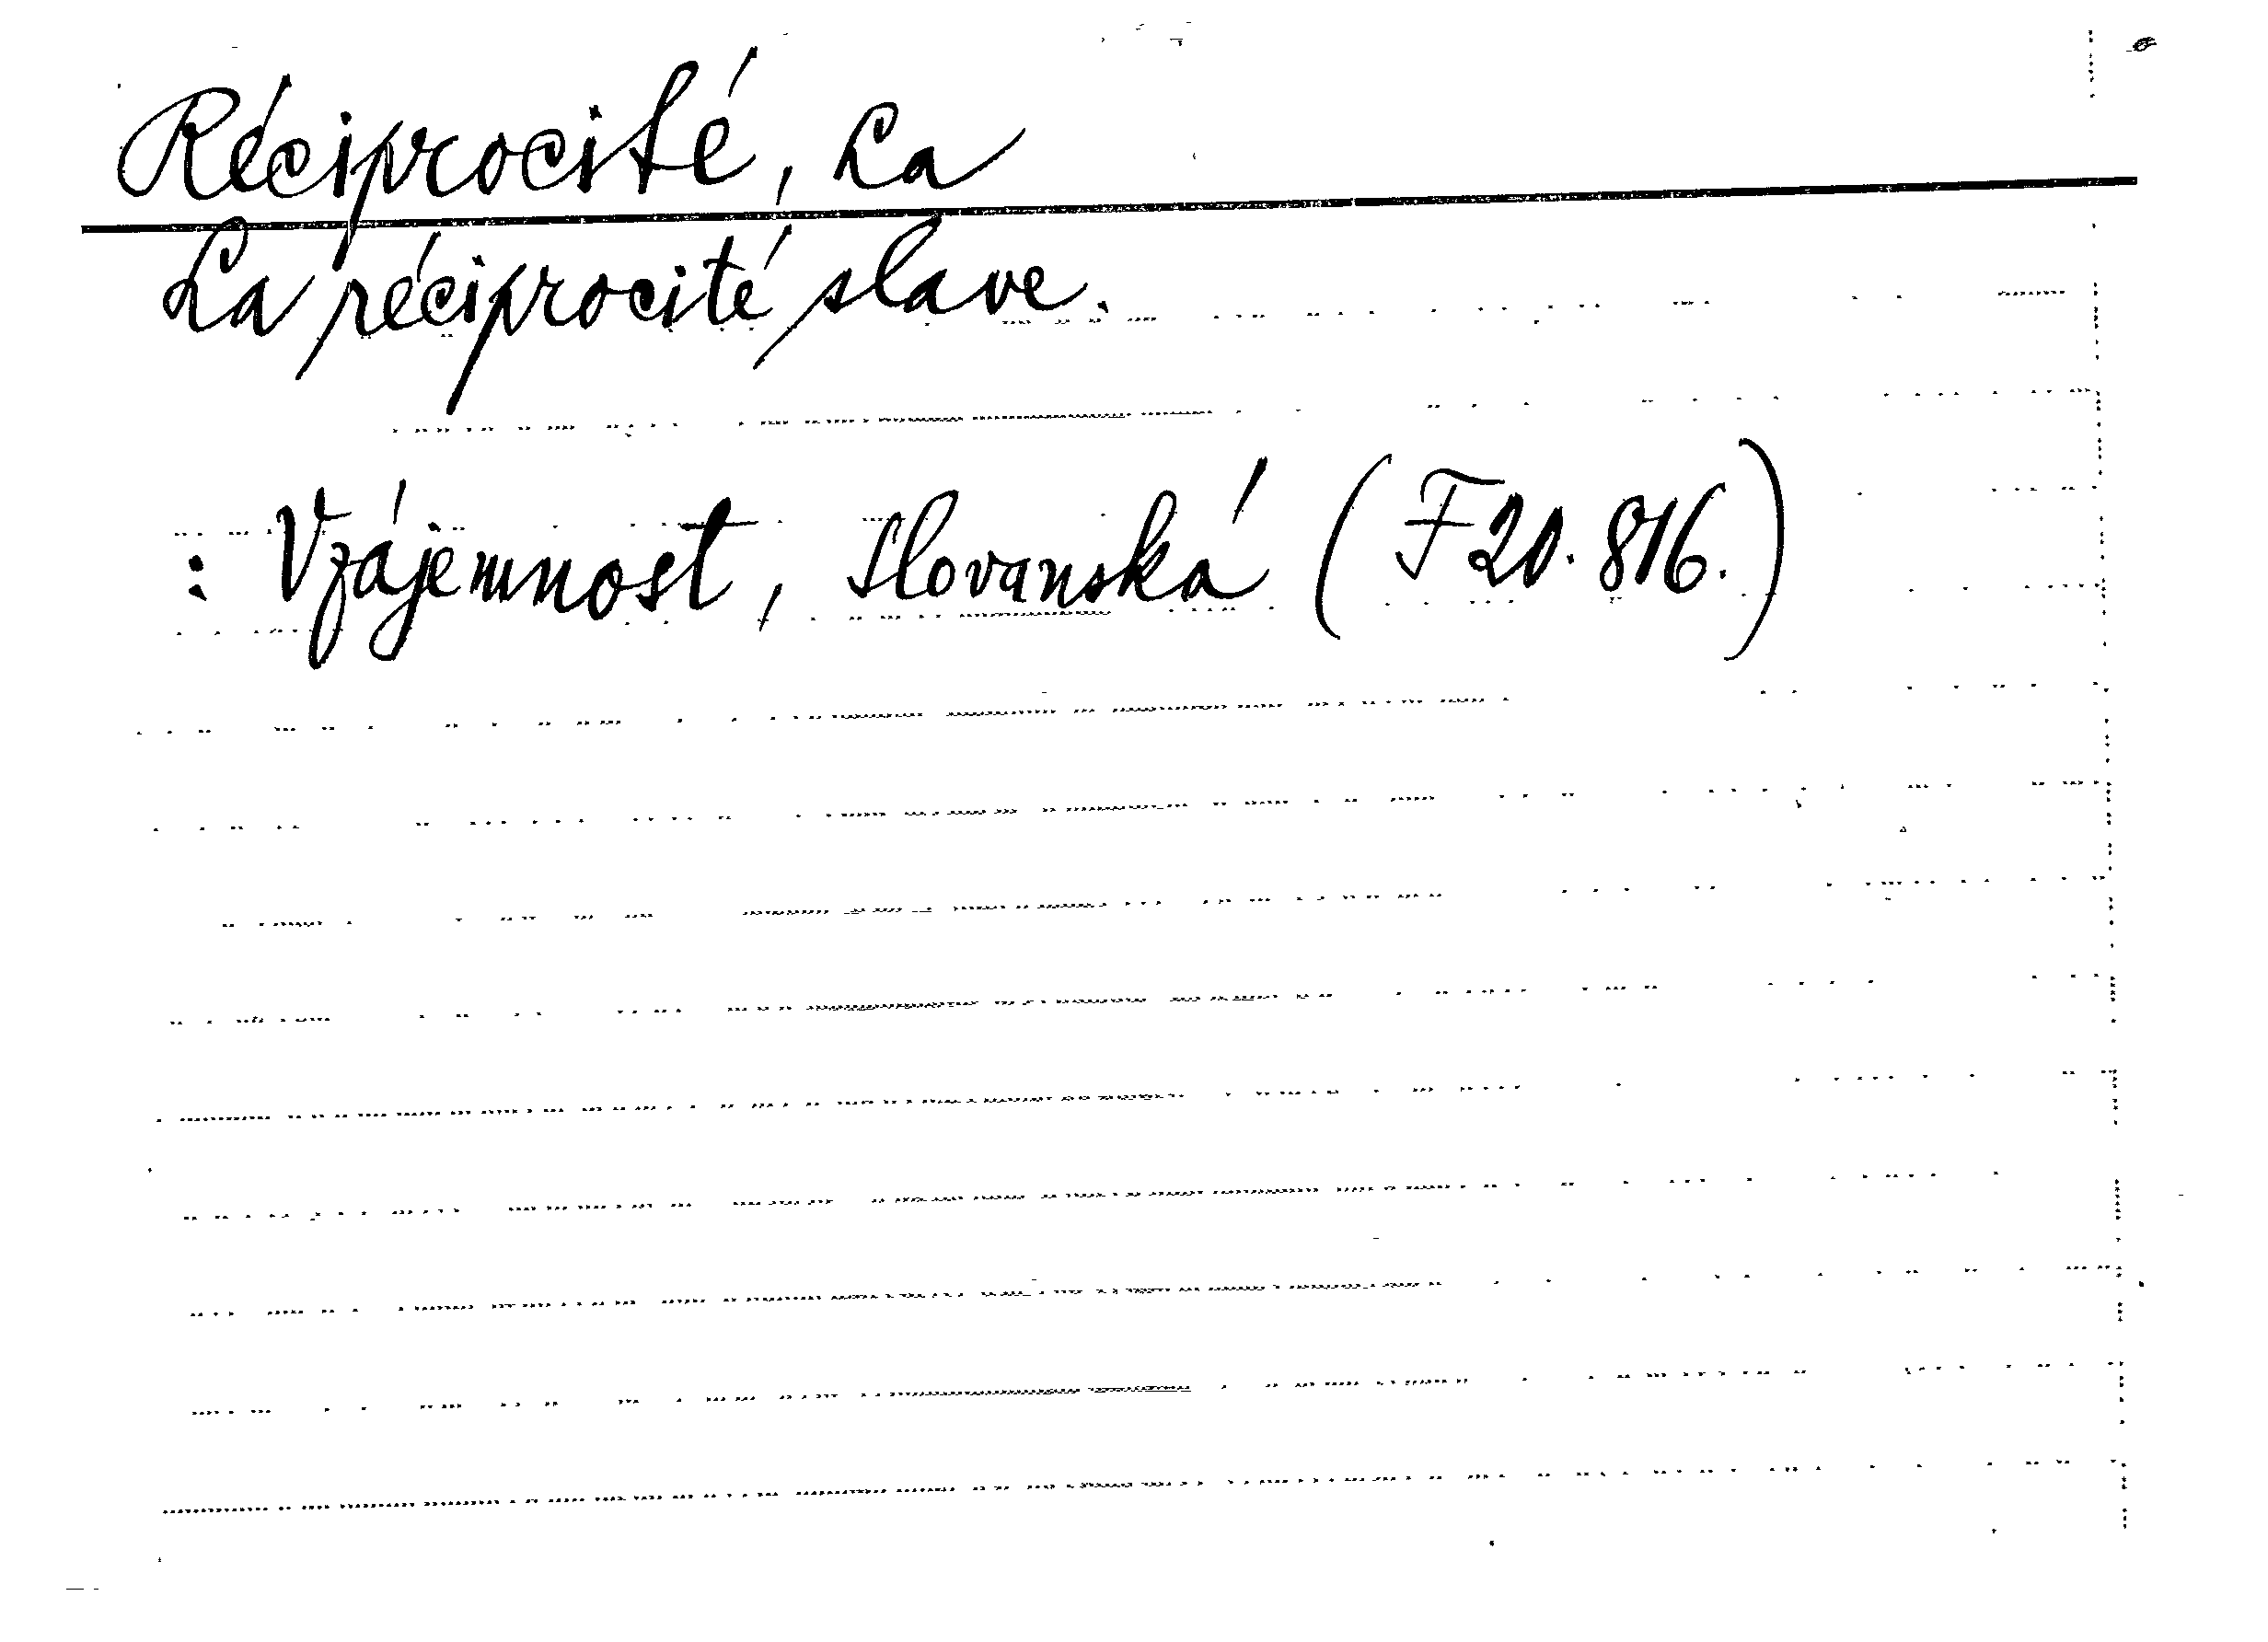 Réciprocité, La
La réciprocité slave.
: Vzájemnost, Slovanská (F 20.816.)